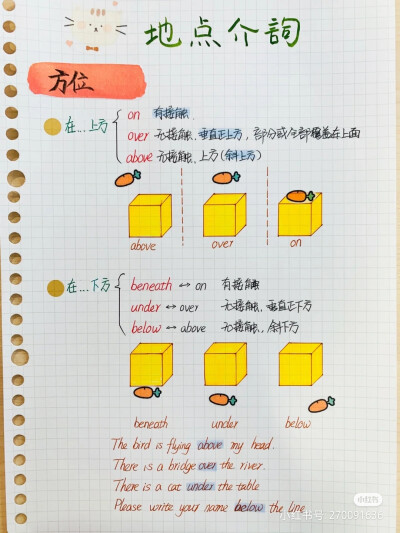 地点介詞
方位
在...上方
on 有接触
over 无接触、垂直正上方，部分或全部覆盖在上面
above 无接触、上方(斜上方)
above over on
在...下方
beneath ↔ on 有接触
under ↔ over 无接触、垂直正下方
below ↔ above 无接触，斜下方
beneath under below
The bird is flying above my head.
There is a bridge over the river.
There is a cat under the table
Please write your name below the line
小红书
小红书号:270091636